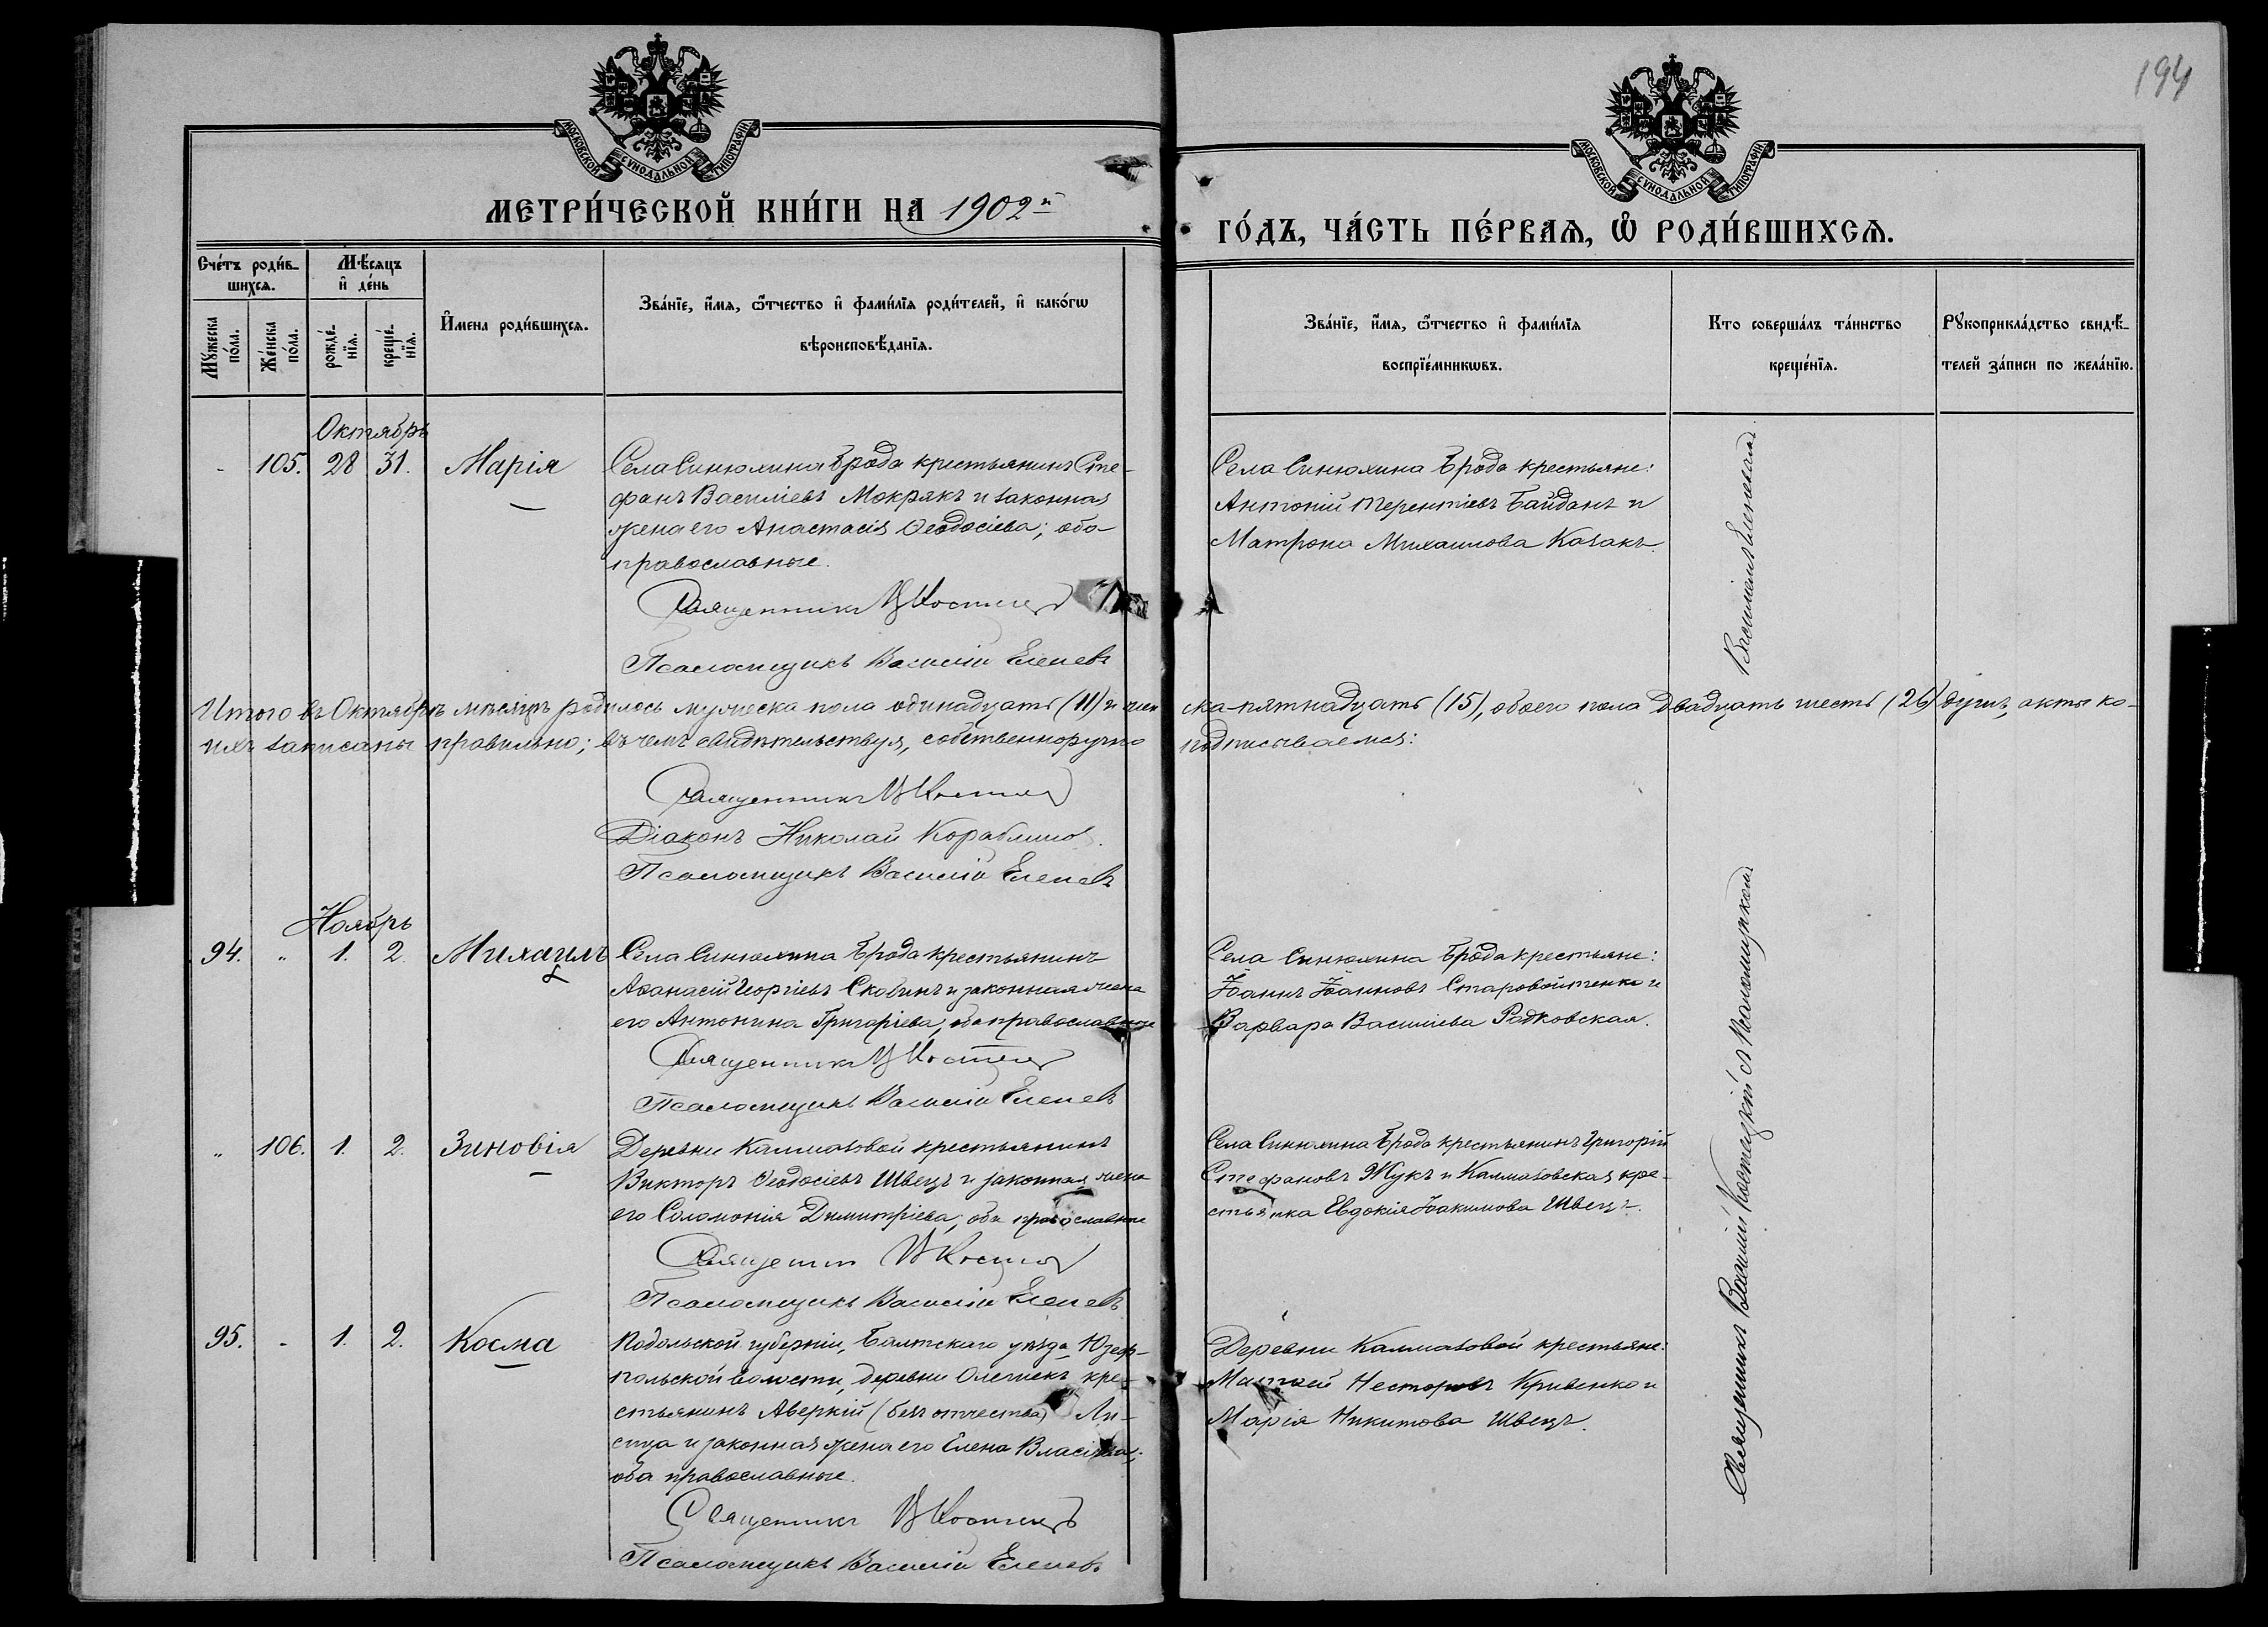 194
МОСКОВСКОЙ СѴНОДАЛЬНОЙ ТИПОГРАФІИ
МОСКОВСКОЙ СѴНОДАЛЬНОЙ ТИПОГРАФІИ
МЕТРИ́ЧЕСКОЙ КНИ́ГИ НА 1902й
ГО́ДЪ, ЧА́СТЬ ПЕ́РВАѦ, Ѡ҆ РОДИ́ВШИХСѦ.
Сче́тъ роди́в-
шихсѧ.
Мѣ́сѧцъ
и҆ де́нь
Мꙋ́жеска
по́ла.
Же́нска
по́ла.
рожде́-
нїѧ.
креще́-
нїѧ.
И҆́мена роди́вшихсѧ.
Зва́нїе, и҆́мѧ, ѻ҆́тчество и҆ фами́лїѧ роди́телей, и҆ како́гѡ
вѣроисповѣ́данїѧ.
Зва́нїе, и҆́мѧ, ѻ҆́тчество и҆ фами́лїѧ
воспрїе́мникѡвъ.
Кто совершáлъ тáинство
креще́нїѧ.
Рꙋкоприклáдство свидѣ́-
телей зáписи по желáнїю.
Октябрь
105. 28 31. Марія
Села Синюхина Брода крестьянинъ Сте-
фанъ Василіевъ Мокрякъ и законная
жена его Анастасія Ѳеодосіева; оба
православные.
Священникъ
Псаломщикъ Василій Еленевъ
Села Синюхина Брода крестьяне:
Антоній Терентіевъ Байданъ и
Матрона Михаилова Казакъ.
Василіемъ Еленевымъ.
Итого въ Октябрѣ мѣсяцѣ родилось мужеска пола одинадцать (11) и жен
ска пятнадцать (15), обоего пола двадцать шесть (26) душъ, акты ко-
ихъ записаны правильно; въ чемъ свидѣтельствуя, собственноручно
подписываемся:
Священникъ
Діаконъ Николай Кораблинов.
Псаломщикъ Василій Еленевъ
Ноябрь
94. " 1. 2. Михаилъ
Села Синюхина Брода крестьянинъ
Аѳанасій Георгіевъ Сковинъ и законная жена
его Антонина Григоріева, оба православные
Священникъ
Псаломщикъ Василій Еленевъ
Села Синюхина Брода крестьяне:
Іоаннъ Іоанновъ Старовойтенко и
Варвара Василіева Радковская.
" 106. 1. 2. Зиновія
Деревни Калмазовой крестьянинъ
Викторъ Ѳеодосіевъ Швецъ и законная жена
его Соломонія Димитріева, оба православные
Священник
Псаломщикъ Василій Еленевъ
Села Синюхина Брода крестьянинъ Григорій
Стефановъ Жукъ и Калмазовская кре-
стьянка Евдокія Іоакимова Швецъ.
95. - 1. 2. Косма
Подольской губерніи, Балтскаго уѣзда Юзеф-
польской волости, деревни Олешекъ кре-
стьянинъ Аверкій (безъ отчества) Ли-
сица и законная жена его Елена Власіева;
оба православные.
Священникъ
Псаломщикъ Василій Еленевъ
Деревни Калмазовой крестьяне:
Матѳей Несторовъ Кривенко и
Марія Никитова Швецъ.
Священникъ Василій Костецкій съ Псаломщикомъ